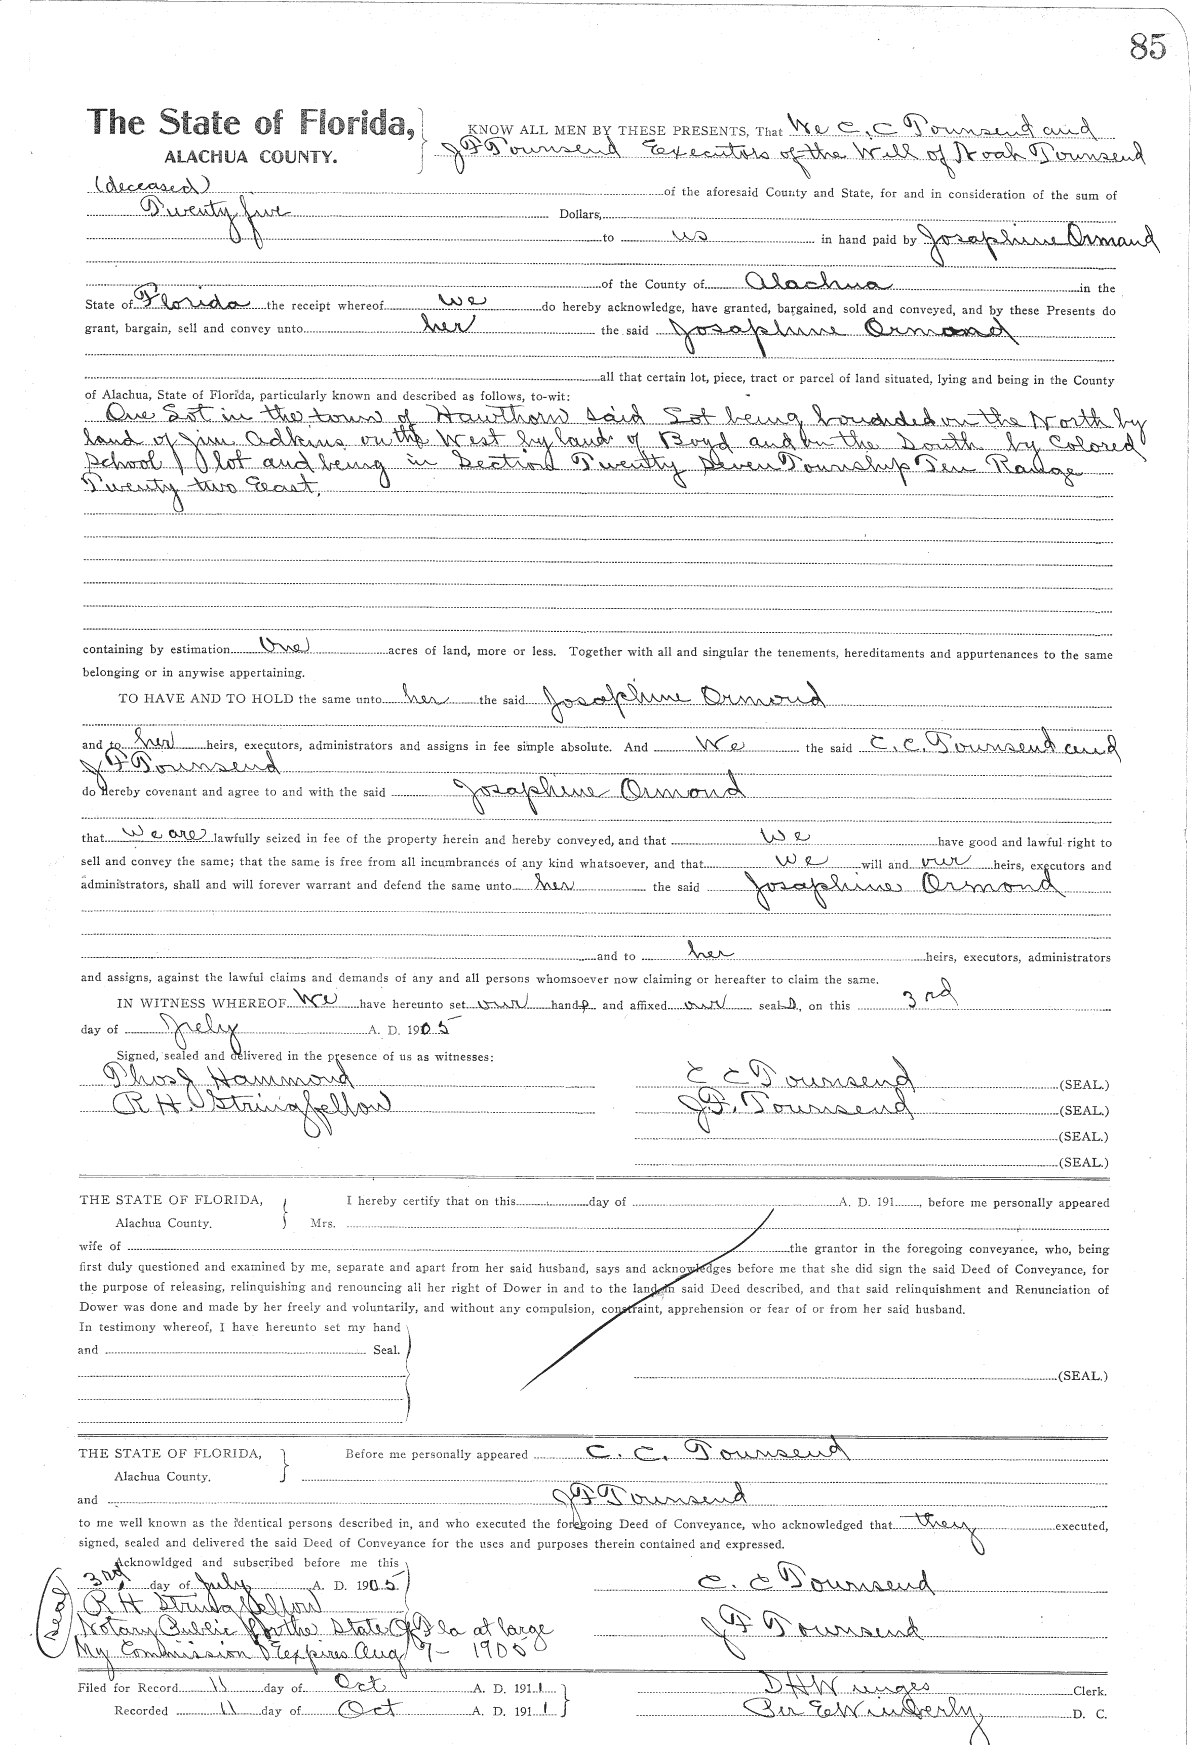 85
The State of Florida,
ALACHUA COUNTY.
KNOW ALL MEN BY THESE PRESENTS, That We C. C Townsend and
J F Townsend Executors of the Will of Noah Townsend
(deceased) of the aforesaid County and State, for and in consideration of the sum of
Twenty five Dollars,
to us in hand paid by Josaphine Ormand
of the County of Alachua in the
State of Florida the receipt whereof we do hereby acknowledge, have granted, bargained, sold and conveyed, and by these Presents do
grant, bargain, sell and convey unto her the said Josaphine Ormond
all that certain lot, piece, tract or parcel of land situated, lying and being in the County
of Alachua, State of Florida, particularly known and described as follows, to-wit:
One Lot in the town of Hawthorn said Lot being bounded on the North by
land of Jim Adkins on the West by lands of Boyd and on the South by Colored
School lot and being in Section Twenty Seven Township Ten Range
Twenty two East.
containing by estimation One acres of land, more or less. Together with all and singular the tenements, hereditaments and appurtenances to the same
belonging or in anywise appertaining.
TO HAVE AND TO HOLD the same unto her the said Josaphine Ormond
and to her heirs, executors, administrators and assigns in fee simple absolute. And We the said C. C. Townsend and
J F Townsend
do hereby covenant and agree to and with the said Josaphine Ormond
that we are lawfully seized in fee of the property herein and hereby conveyed, and that we have good and lawful right to
sell and convey the same; that the same is free from all incumbrances of any kind whatsoever, and that we will and our heirs, executors and
administrators, shall and will forever warrant and defend the same unto her the said Josaphine Ormond
and to her heirs, executors, administrators
and assigns, against the lawful claims and demands of any and all persons whomsoever now claiming or hereafter to claim the same.
IN WITNESS WHEREOF We have hereunto set our hands and affixed our seals, on this 3rd
day of July A. D. 1905
Signed, sealed and delivered in the presence of us as witnesses:
Thos J Hammond C C Townsend (SEAL.)
R H. Stringfellow J. F. Townsend (SEAL.)
(SEAL.)
(SEAL.)
THE STATE OF FLORIDA, I hereby certify that on this day of A. D. 191 , before me personally appeared
Alachua County. Mrs.
wife of the grantor in the foregoing conveyance, who, being
first duly questioned and examined by me, separate and apart from her said husband, says and acknowledges before me that she did sign the said Deed of Conveyance, for
the purpose of releasing, relinquishing and renouncing all her right of Dower in and to the land in said Deed described, and that said relinquishment and Renunciation of
Dower was done and made by her freely and voluntarily, and without any compulsion, constraint, apprehension or fear of or from her said husband.
In testimony whereof, I have hereunto set my hand
and Seal.
(SEAL.)
THE STATE OF FLORIDA, Before me personally appeared C. C. Townsend
Alachua County.
and J F Townsend
to me well known as the identical persons described in, and who executed the foregoing Deed of Conveyance, who acknowledged that they executed,
signed, sealed and delivered the said Deed of Conveyance for the uses and purposes therein contained and expressed.
Acknowldged and subscribed before me this
3rd day of July A. D. 1905 C. C Townsend
R H Stringfellow
(seal) Notary Public for the State Of Fla at large J F Townsend
My Commission Expires Aug 7- 1905
Filed for Record 11 day of Oct A. D. 1911 Clerk.
Recorded 11 day of Oct A. D. 1911 Per E Wimberly D. C.